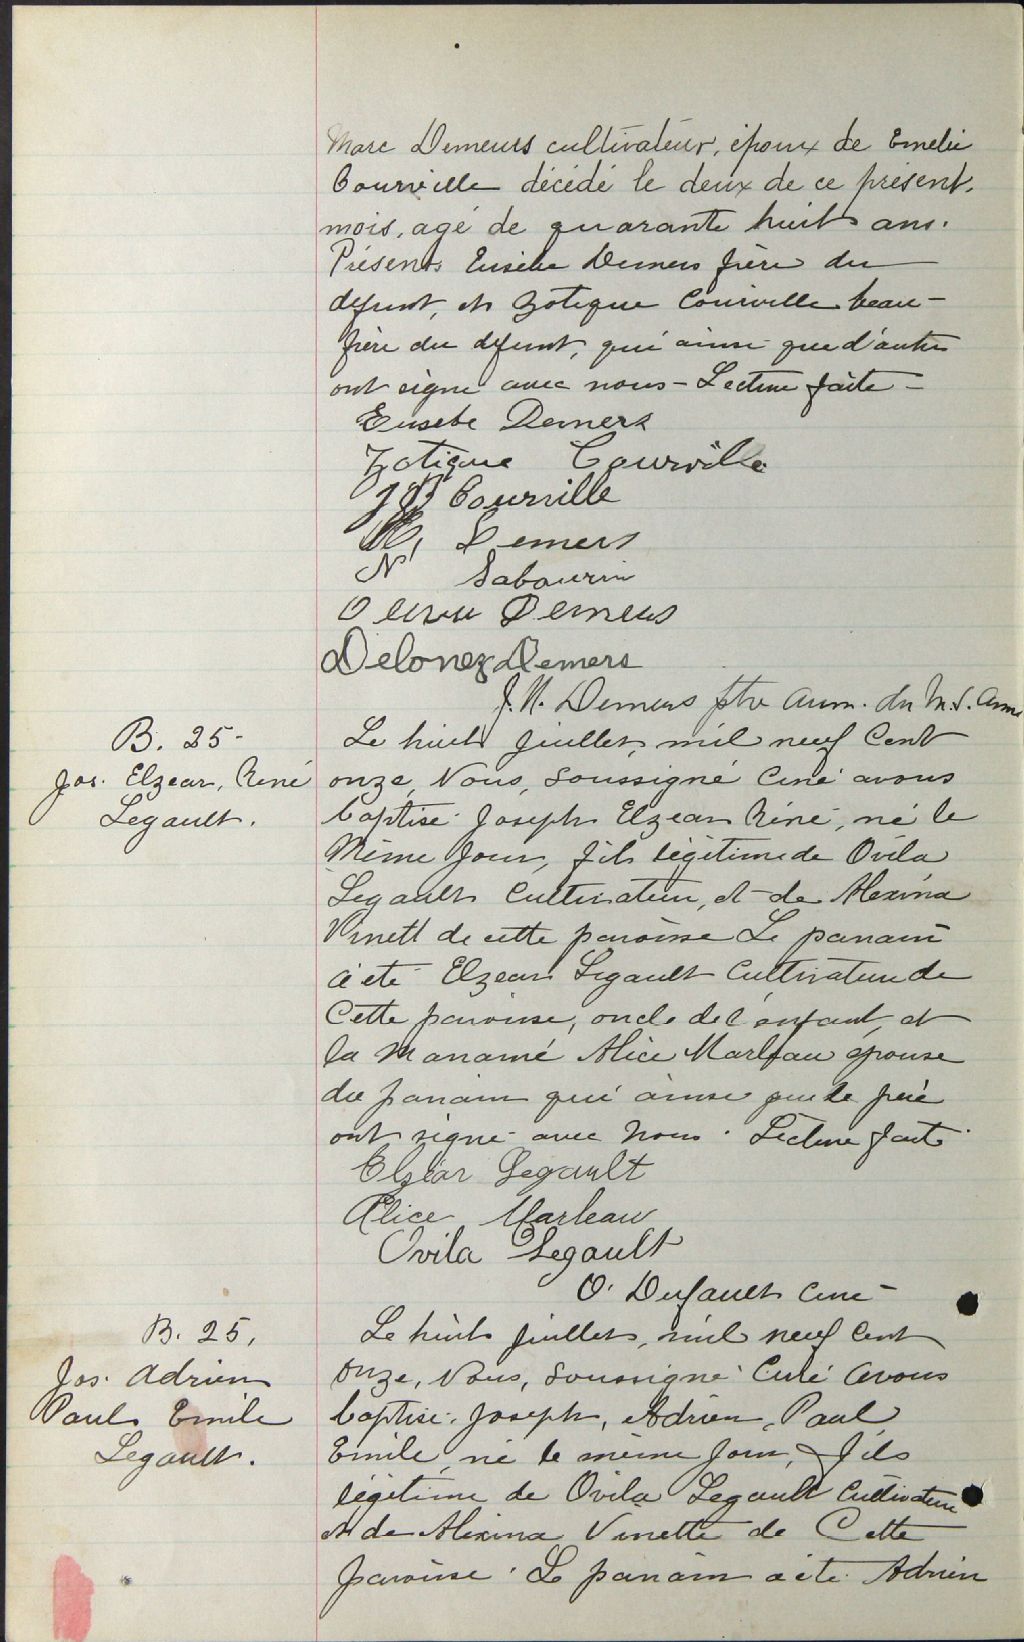 Marc Demers cultivateur, époux de Emélie
Courville décédé le deux de ce présent
mois, agé de quarante huit ans.
Présents Eusèbe Demers frère du
défunt, et Zotique Courville beau-
frère du défunt, qui ainsi que d'autres
ont signé avec nous - Lecture faite -
Eusebe Demers
Zotique Courville
J B Courville
Demers
N Sabourin
Demers
Delonez Demers
J. N. Demers ptre aum. du M. S. Anne
B. 25-
Jos. Elzear, René
Legault.
Le huit juillet, mil neuf Cent
onze, Nous, Soussigné Curé avons
baptisé Joseph Elzear Réné, né le
Même Jour, fils légitime de Ovila
Legault Cultivateur, et de Alexina
Vinett de cette paroisse Le parrain
a été Elzear Legault Cultivateur de
Cette paroisse, oncle de l'enfant, et
la Marraine Alice Marleau épouse
du parrain qui ainsi que le père
ont signé avec Nous. Lecture faite.
Elzéar Legault
Alice Marleau
Ovila Legault
O. Dufault Curé -
B. 25,
Jos. Adrien
Paul Emile
Legault.
Le huit juillet, mil neuf Cent
Onze, Nous, Soussigné Curé avons
baptisé Joseph, Adrien, Paul
Emile, né le même Jour, fils
légitime de Ovila Legault Cultivateur
et de Alexina Vinette de Cette
paroisse. Le parrain a été Adrien